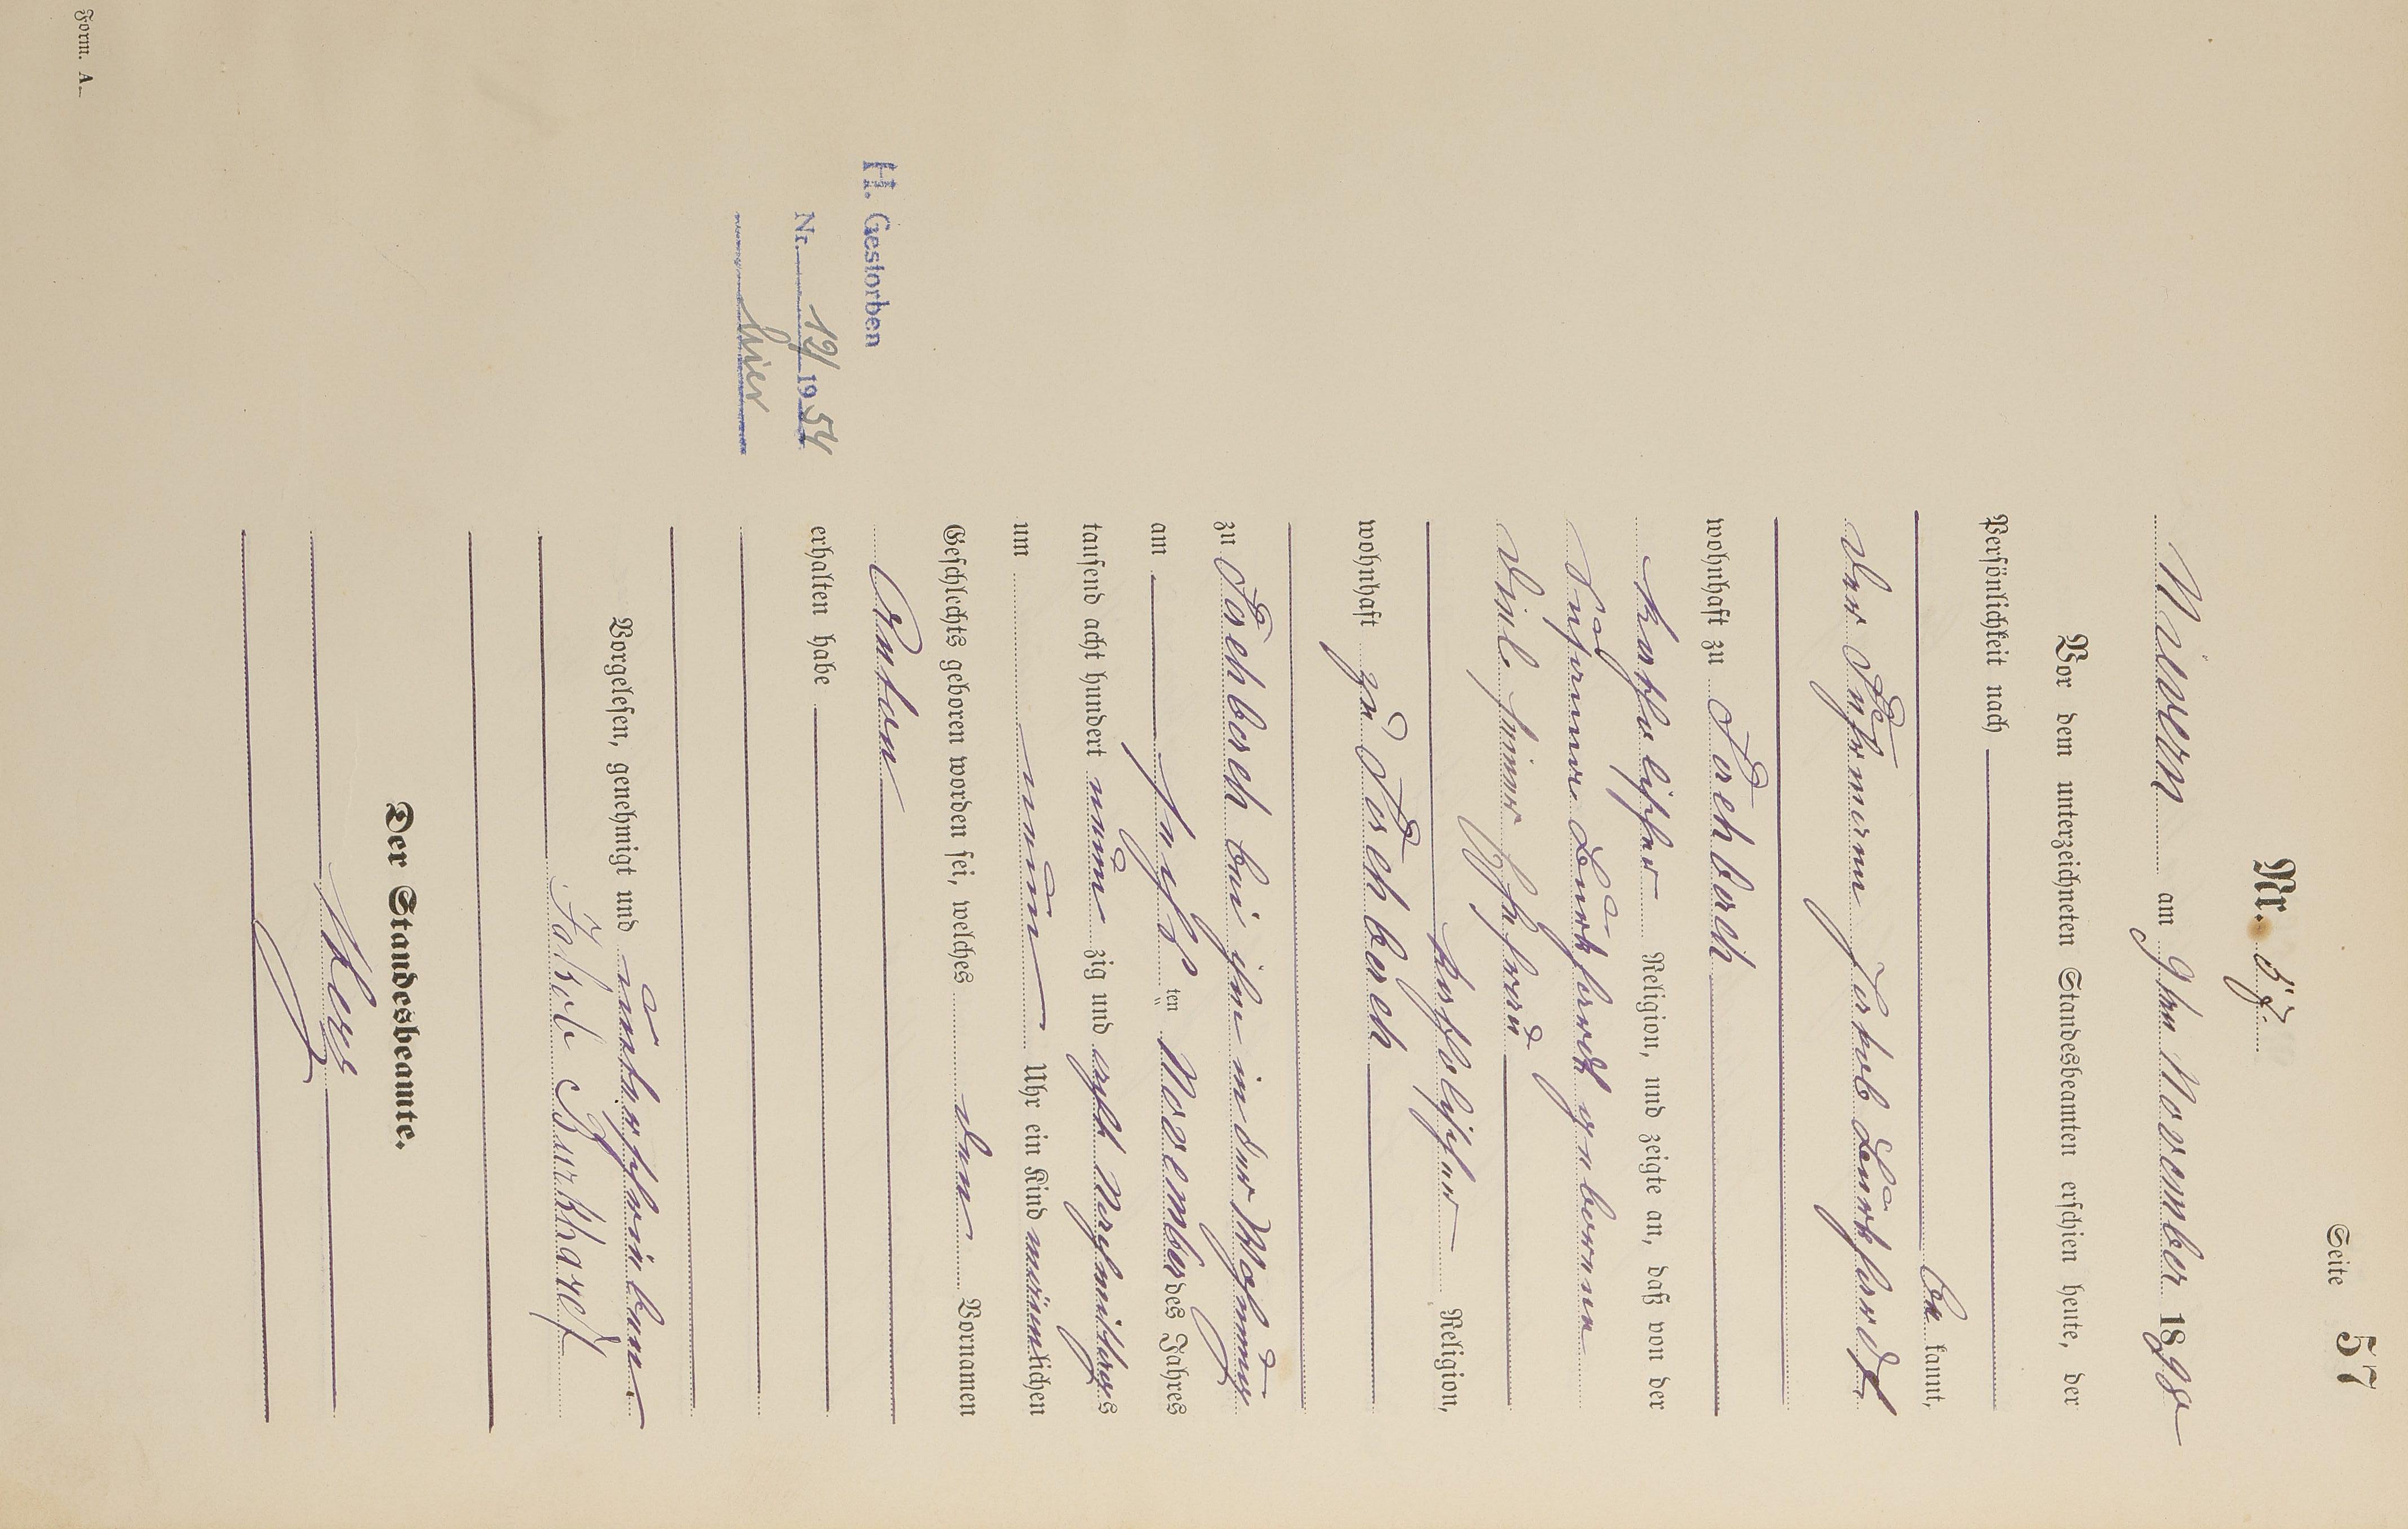 Seite 57
Nr. 57.
Nievern am 9ten November 1898
Vor dem unterzeichneten Standesbeamten erschien heute, der
Persönlichkeit nach
be kannt,
der Fuhrmann Jakob Burkhardt
wohnhaft zu Fachbach
katholischer Religion, und zeigte an, daß von der
Burkhardt geborenen
Diel seiner Ehefrau
katholischer Religion,
wohnhaft zu Fachbach
zu Fachbach bei ihm in der Wohnung
am sechs ten November des Jahres
tausend acht hundert neun zig und acht Nachmittags
um neun Uhr ein Kind männlichen
Geschlechts geboren worden sei, welches den Vornamen
Anton
erhalten habe
H. Gestorben
Nr. 19/1954
hier
Vorgelesen, genehmigt und unterschrieben
Jakob Burkhard
Der Standesbeamte.
Form. A.